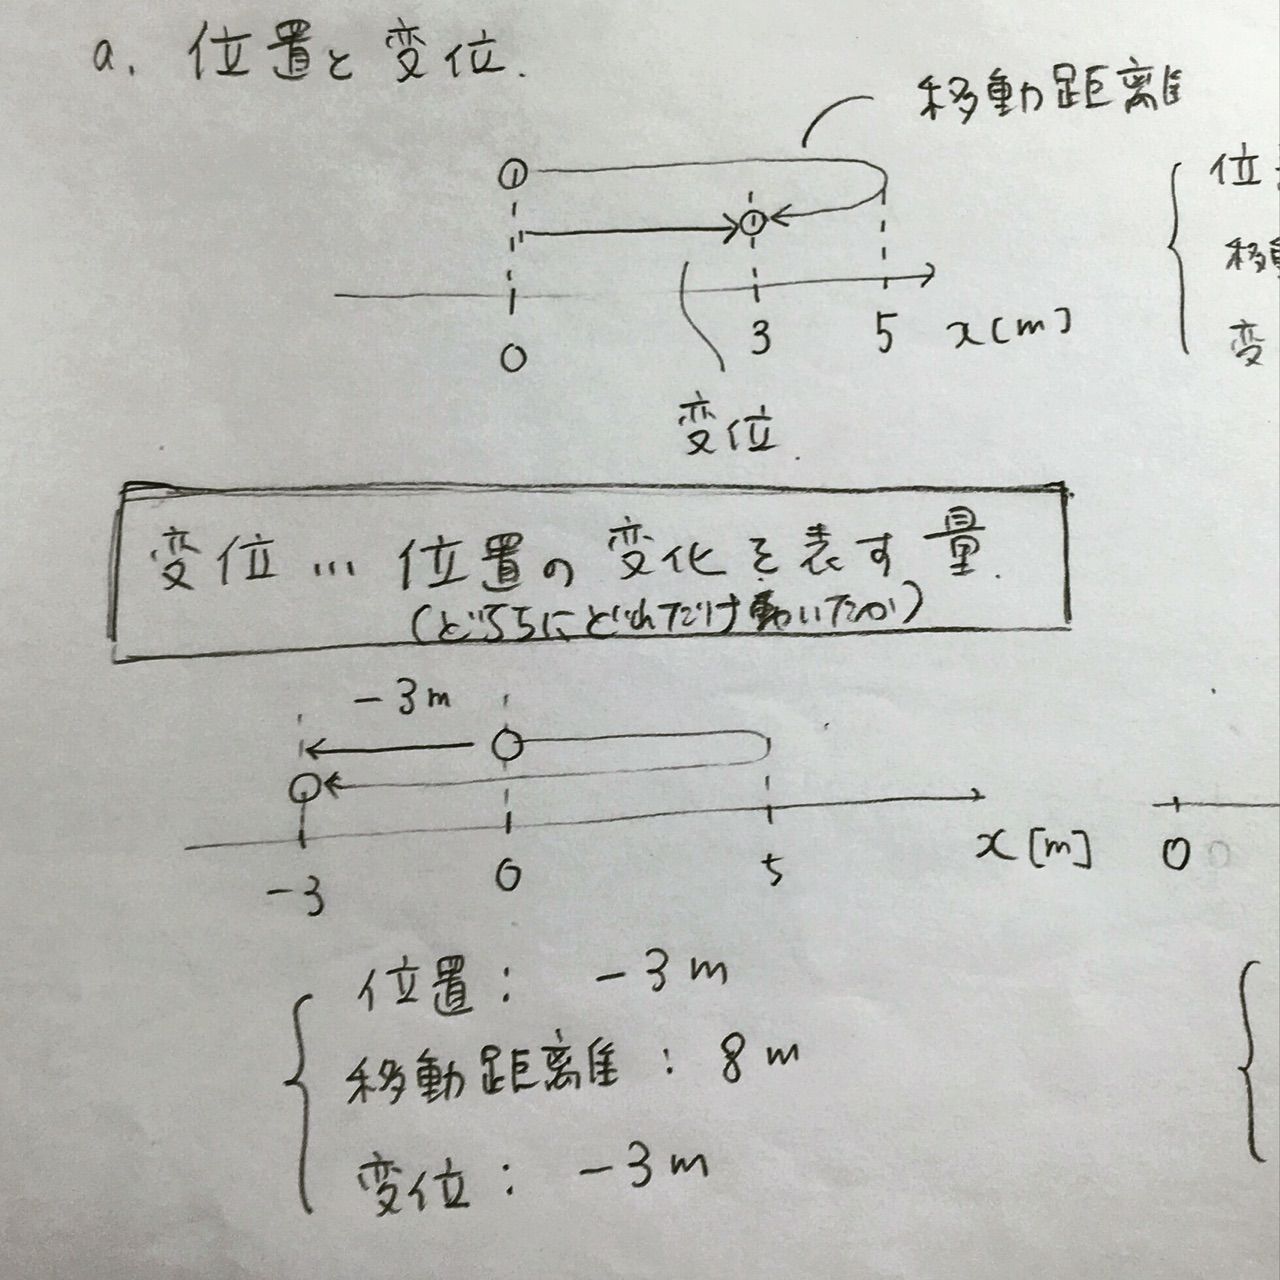 a. 位置と変位.
移動距離
位
移
変
0 3 5 x[m]
変位.
変位… 位置の変化を表す量.
(どちらにどれだけ動いたか)
-3m
-3 0 5 x[m]
0 0
位置: -3m
移動距離: 8m
変位: -3m